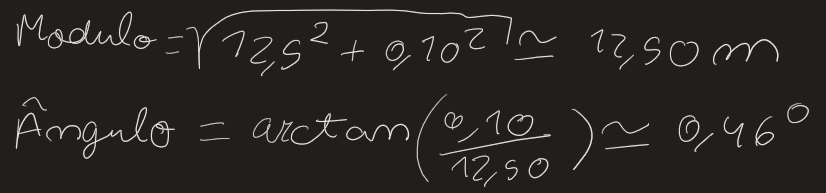 Modulo = √12,5² + 0,10² ≃ 12,50 m
Ângulo = arctan(0,10/12,50) ≃ 0,46°